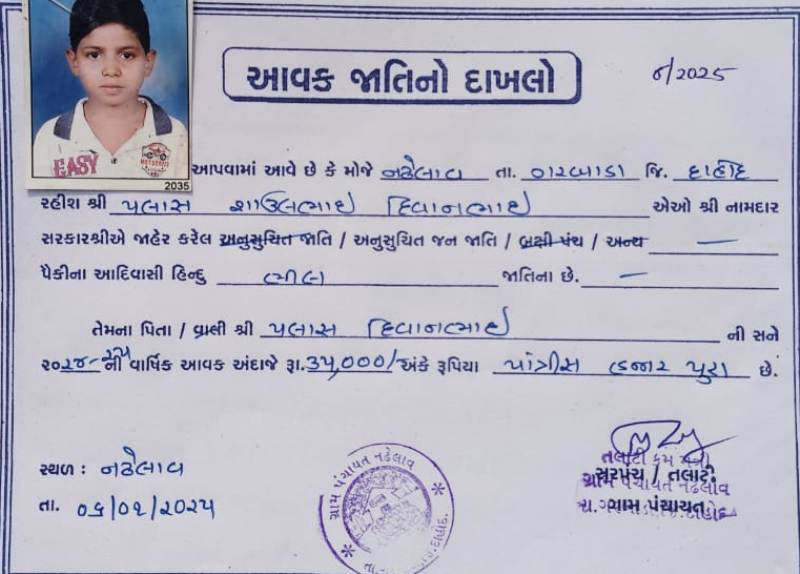 આવક જાતિનો દાખલો
૪/2025
EASY
2035
આપવામાં આવે છે કે મોજે નઢેલાવ તા. ગરબાડા જિ. દાહોદ
રહીશ શ્રી પલાસ શાઉલભાઇ દિવાનભાઇ એઓ શ્રી નામદાર
સરકારશ્રીએ જાહેર કરેલ અનુસુચિત જાતિ / અનુસુચિત જન જાતિ / બક્ષી પંચ / અન્ય —
પૈકીના આદિવાસી હિન્દુ ભીલ જાતિના છે. —
તેમના પિતા / વાલી શ્રી પલાસ દિવાનભાઇ ની સને
૨૦૨૪-૨૫ ની વાર્ષિક આવક અંદાજે રૂા. ૩૫,૦૦૦/- અંકે રૂપિયા પાંત્રીસ હજાર પુરા છે.
સ્થળ : નઢેલાવ
તા. ૦૬/૦૧/૨૦૨૫
ગ્રામ પંચાયત નઢેલાવ
તલાટી કમ મંત્રી
સરપંચ / તલાટી
ગ્રામ પંચાયત નઢેલાવ
ગ્રામ પંચાયત